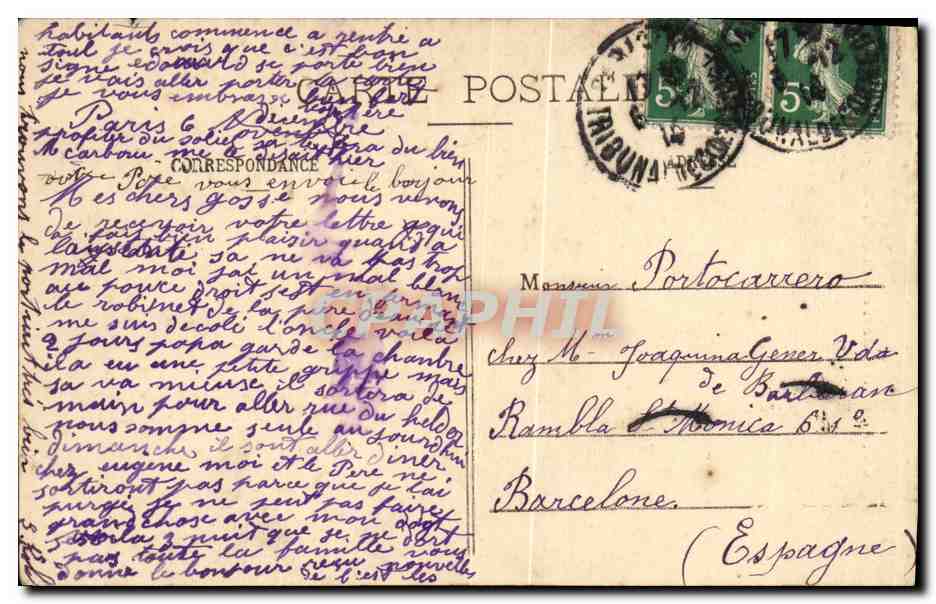 habitants commence a rentré a
tout je crois que c'est bon
signe edouard se porte bien
je vais aller porter la carte
je vous embrasse bien
Paris 6
profiter du soleil sa te fera du bien
CARTE POSTALE
CORRESPONDANCE
votre Père vous envoie le bonjour
Mes chers gosse nous venons
de recevoir votre lettre
bien plaisir quand a
sa ne va pas trop
mal moi jai un mal blanc
au pouce droit sest en
le robinet de la
me suis decolé l'oncle voila
2 jours papa garde la chambre
il a eu une petite grippe mais
sa va mieuse il sortira de
main pour aller rue du helder
nous somme seule aujourdhui
dimanche il sont aller diner
chez eugene moi et le Père ne
sortiront pas parce que je l'ai
purgé je ne peut pas faire
grand chose avec mon doigt
voila 2 nuit que je ne dort
pas toute la famille vous
donne le bonjour reçu nouvelles
de l'est les
5
5
Monsieur Portocarrero
chez Mme Joaquina Gener Vda
de
Rambla Sta Monica 6
Barcelone.
(Espagne)
CPAPHIL